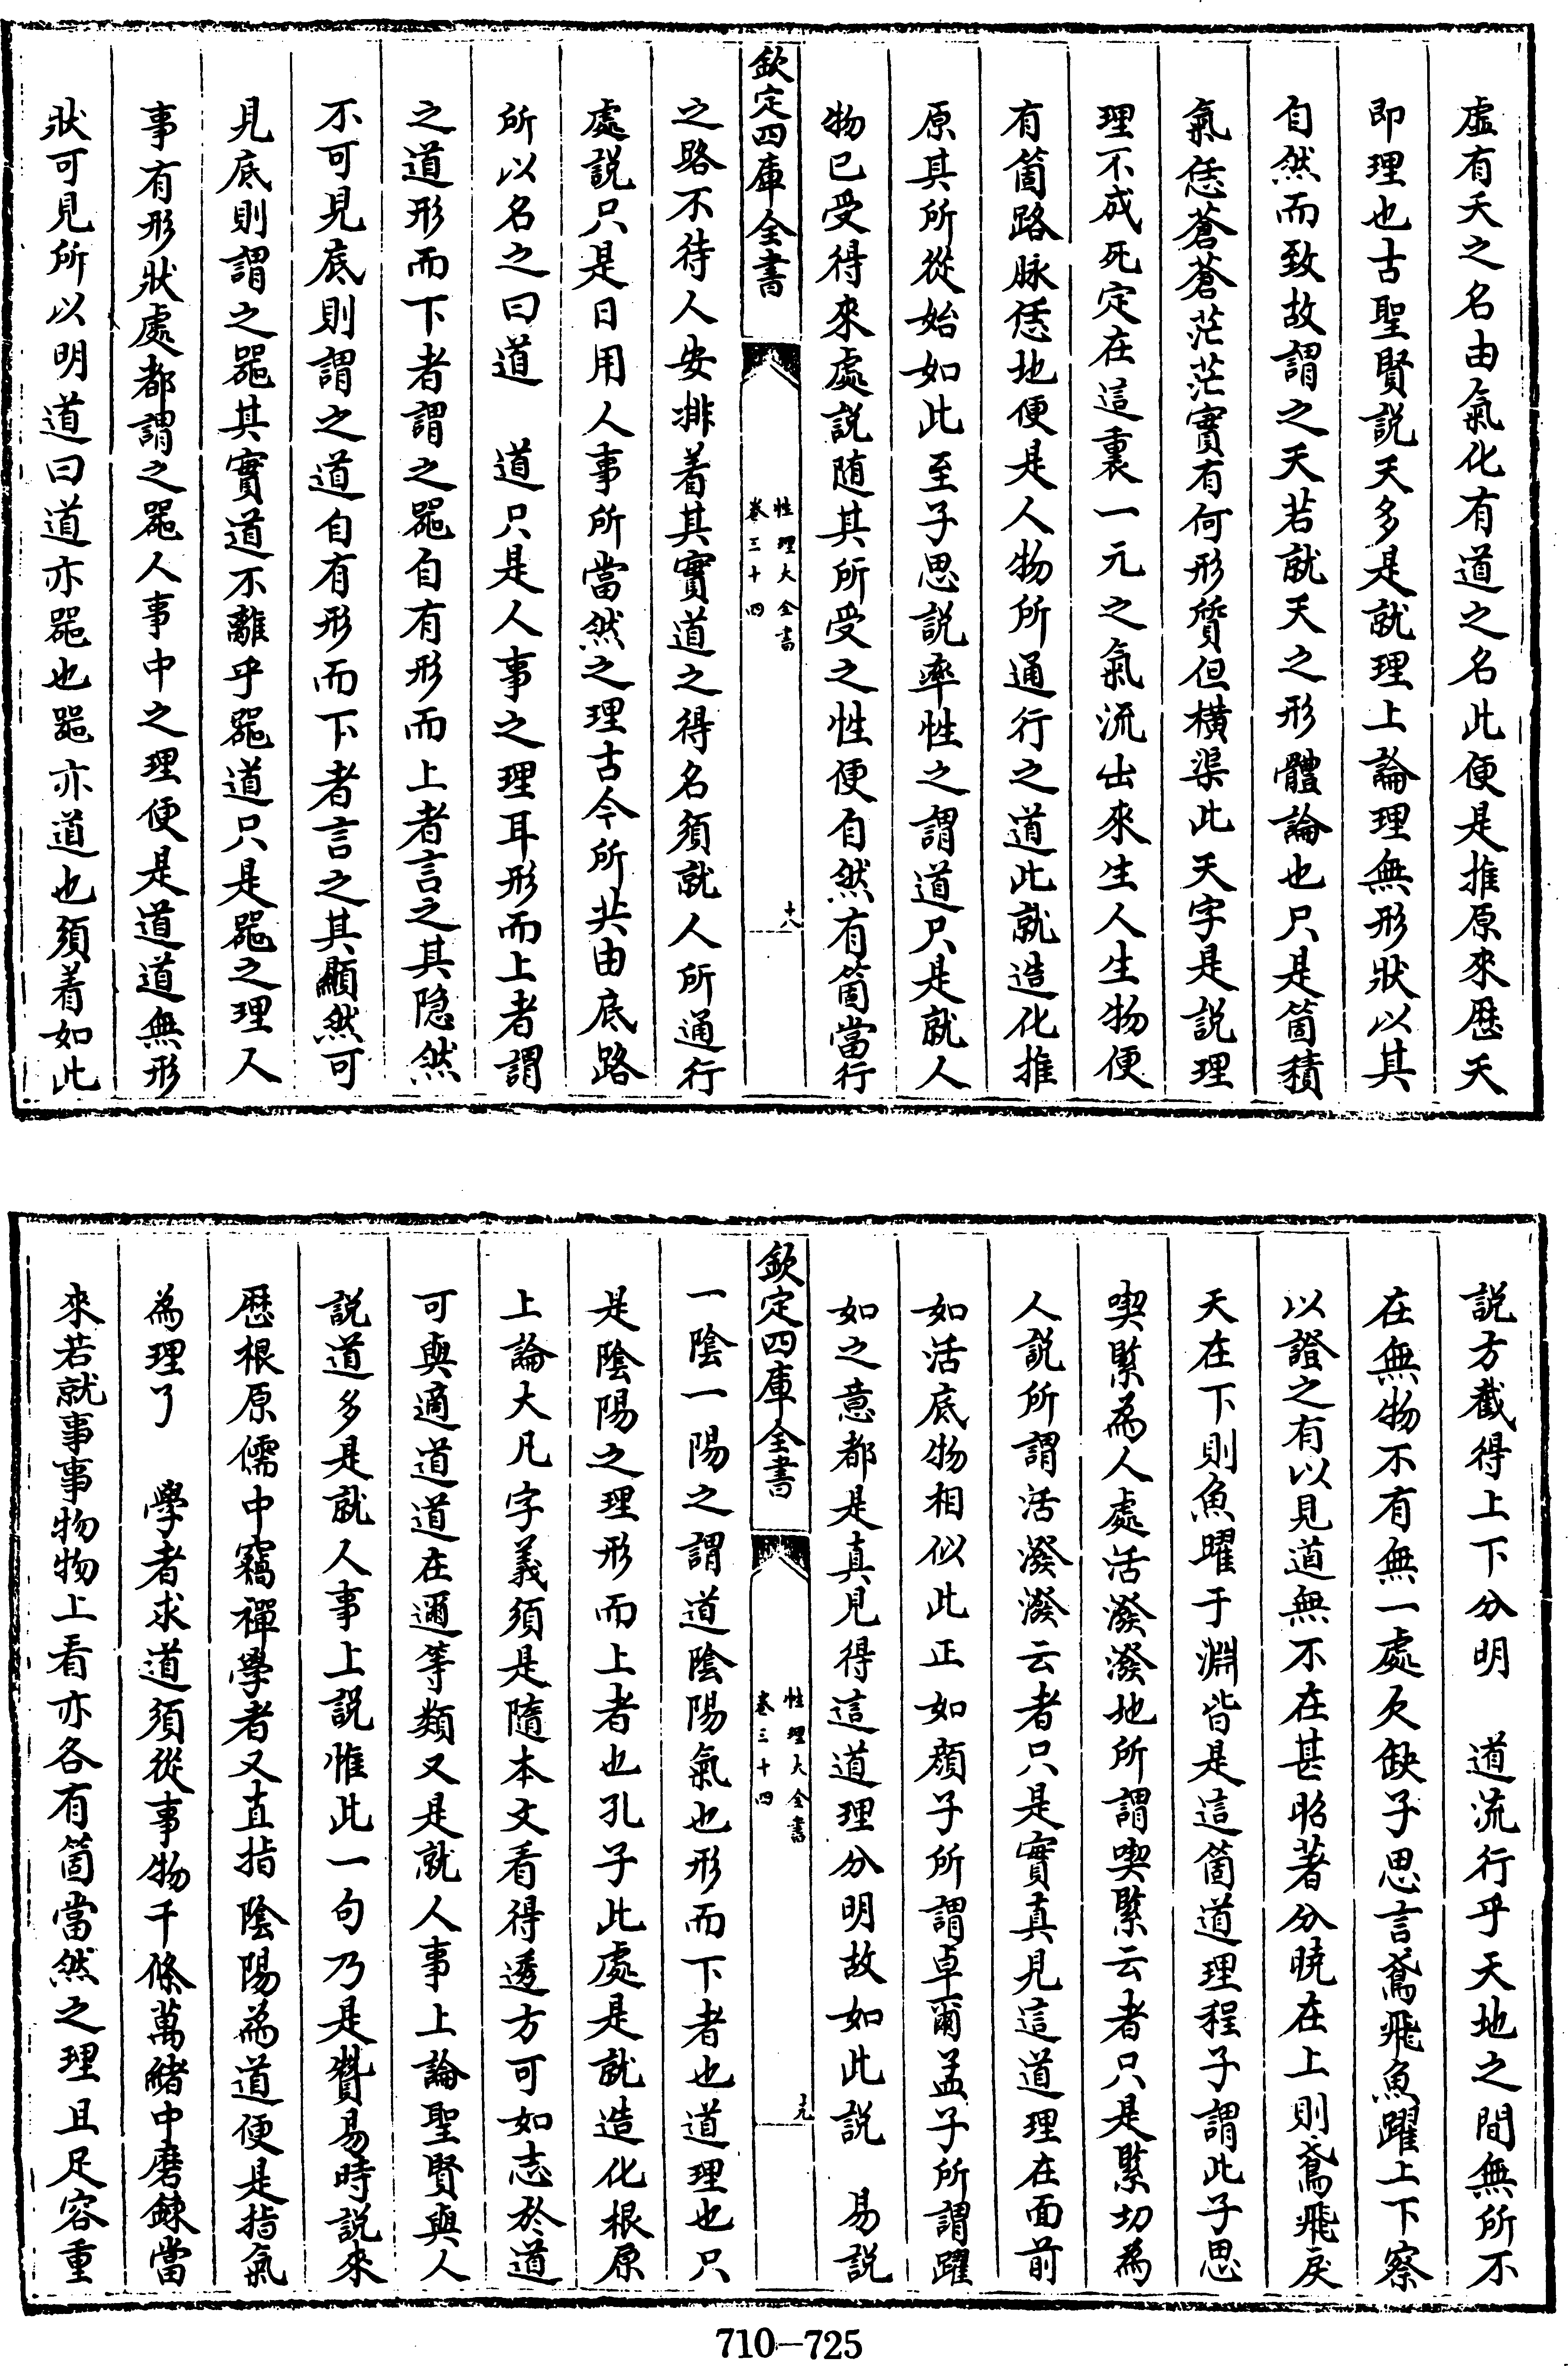 虛有天之名由氣化有道之名此便是推原來歴天
即理也古聖賢説天多是就理上論理無形狀以其
自然而致故謂之天若就天之形體論也只是箇積
氣恁蒼蒼茫茫實有何形質但橫渠此天字是説理
理不成死定在這裏一元之氣流出來生人生物便
有箇路脉恁地便是人物所通行之道此就造化推
原其所從始如此至子思説率性之謂道只是就人
物已受得來處説随其所受之性便自然有箇當行
欽定四庫全書
性理大全書
卷三十四
十八
之路不待人安排着其實道之得名須就人所通行
處説只是日用人事所當然之理古今所共由底路
所以名之曰道　道只是人事之理耳形而上者謂
之道形而下者謂之器自有形而上者言之其隐然
不可見底則謂之道自有形而下者言之其顯然可
見底則謂之器其實道不離乎器道只是器之理人
事有形狀處都謂之器人事中之理便是道道無形
狀可見所以明道曰道亦器也器亦道也須着如此
説方截得上下分明　道流行乎天地之間無所不
在無物不有無一處欠缺子思言鳶飛魚躍上下察
以證之有以見道無不在甚昭著分曉在上則鳶飛戾
天在下則魚躍于淵皆是這箇道理程子謂此子思
喫緊為人處活潑潑地所謂喫緊云者只是緊切為
人説所謂活潑潑云者只是實真見這道理在面前
如活底物相似此正如顔子所謂卓爾孟子所謂躍
如之意都是真見得這道理分明故如此説　易説
欽定四庫全書
性理大全書
卷三十四
十九
一陰一陽之謂道陰陽氣也形而下者也道理也只
是陰陽之理形而上者也孔子此處是就造化根原
上論大凡字義須是隨本文看得透方可如志於道
可與適道道在邇等類又是就人事上論聖賢與人
説道多是就人事上説惟此一句乃是贊易時説來
歴根原儒中竊禪學者又直指陰陽為道便是指氣
為理了　學者求道須從事物千條萬緒中磨錬當
來若就事事物物上看亦各有箇當然之理且足容重
710-725